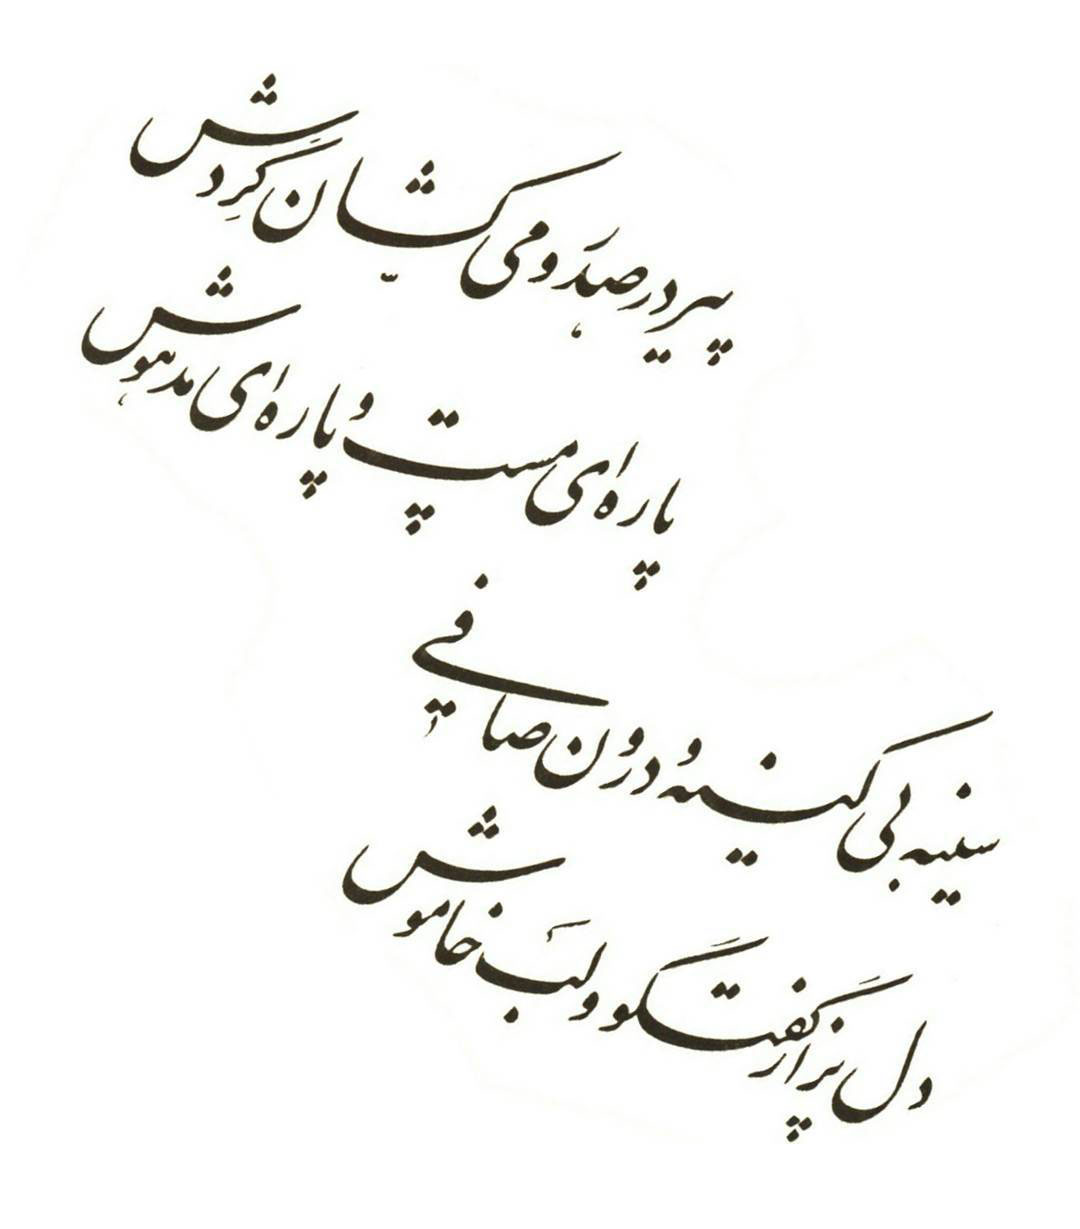 پیر در صدر و می کشان گِردَش
پاره ای مست و پاره ای مدهوش
سینه بی کینه و درون صافی
دل پر از گفتگو و لب خاموش